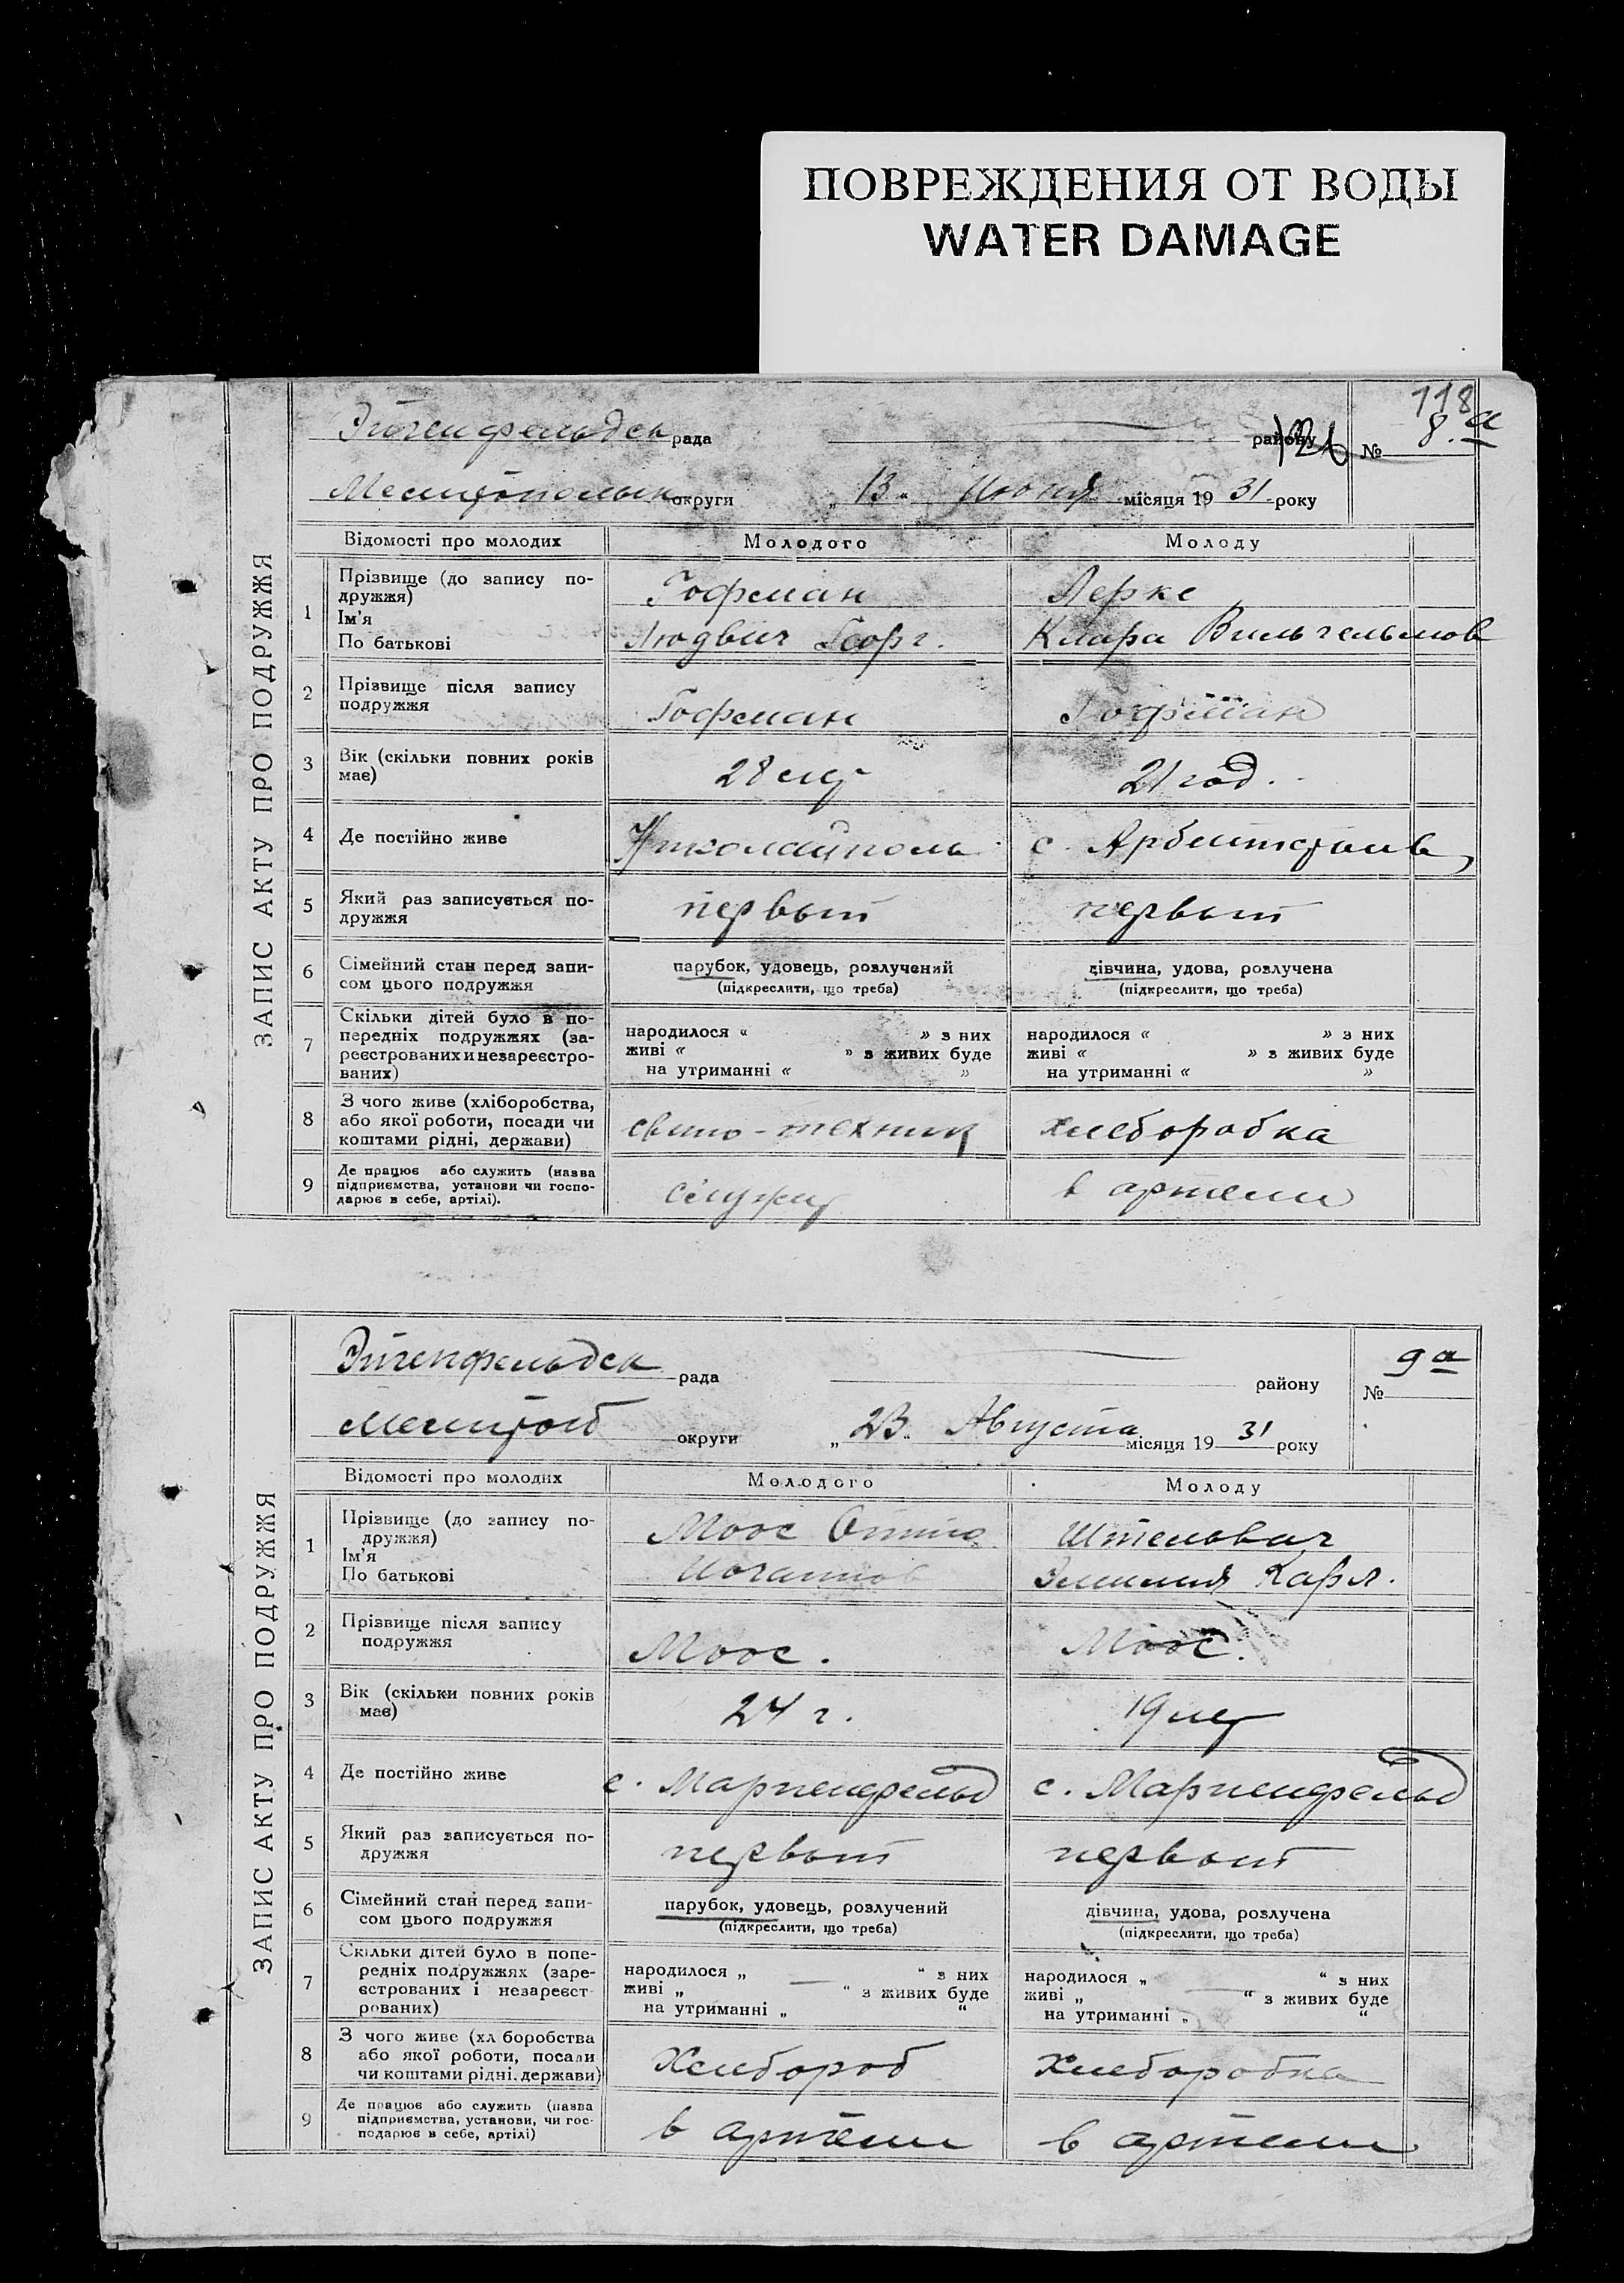 ПОВРЕЖДЕНИЯ ОТ ВОДЫ
WATER DAMAGE
118
Эйгенфельдск рада району № 8.а
Мелитопольск округи „ 13 “ Июня місяця 19 31 року
ЗАПИС АКТУ ПРО ПОДРУЖЖЯ
Відомості про молодих Молодого Молоду
1 Прізвище (до запису по-
дружжя) Гофман Лерке
Ім'я
По батькові Людвиг Георг. Клара Вильгельмов
2 Прізвище після запису
подружжя Гофман Гофман
3 Вік (скільки повних років
має) 28 лет 21 год.
4 Де постійно живе Николайполь с.
5 Який раз записується по-
дружжя первый первый
6 Сімейний стан перед запи-
сом цього подружжя парубок, удовець, розлучений дівчина, удова, розлучена
(підкреслити, що треба) (підкреслити, що треба)
7 Скільки дітей було в по-
передніх подружжях (за-
реєстрованих и незареєстро-
ваних)
народилося « » з них народилося « » з них
живі « » з живих буде живі « » з живих буде
на утриманні « » на утриманні « »
8 З чого живе (хліборобства,
або якої роботи, посади чи
коштами рідні, держави) свино-техник хлеборобка
9 Де працює або служить (назва
підприємства, установи чи госпо-
дарює в себе, артілі). служит в артели
Эйгенфельдск рада району № 9а
Мелитоп округи „ 23 “ Августа місяця 19 31 року
ЗАПИС АКТУ ПРО ПОДРУЖЖЯ
Відомості про молодих Молодого Молоду
1 Прізвище (до запису по-
дружжя) Моос Отто Штельваг
Ім'я
По батькові Иоганнов Эмилия Карл.
2 Прізвище після запису
подружжя Моос. Моос.
3 Вік (скільки повних років
має) 24 г. 19 лет
4 Де постійно живе с. Мариенфельд с. Мариенфельд
5 Який раз записується по-
дружжя первый первый
6 Сімейний стан перед запи-
сом цього подружжя парубок, удовець, розлучений дівчина, удова, розлучена
(підкреслити, що треба) (підкреслити, що треба)
7 Скільки дітей було в попе-
редніх подружжях (заре-
єстрованих і незареєст
рованих)
народилося „ “ з них народилося „ “ з них
живі „ “ з живих буде живі „ “ з живих буде
на утриманні „ “ на утриманні „ “
8 З чого живе (хл боробства
або якої роботи, посади
чи коштами рідні, держави) Хлебороб Хлеборобка
9 Де працює або служить (назва
підприємства, установи, чи гос-
подарює в себе, артілі) в артели в артели